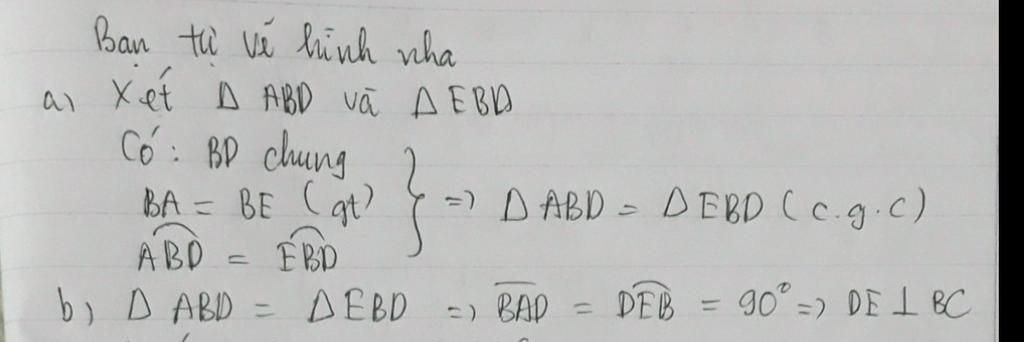 Bạn tự vẽ hình nha
a) Xét Δ ABD và Δ EBD
Có: BD chung
BA = BE (gt) } => Δ ABD = Δ EBD (c.g.c)
ABD = EBD
b) Δ ABD = Δ EBD => BAD = DEB = 90° => DE ⊥ BC